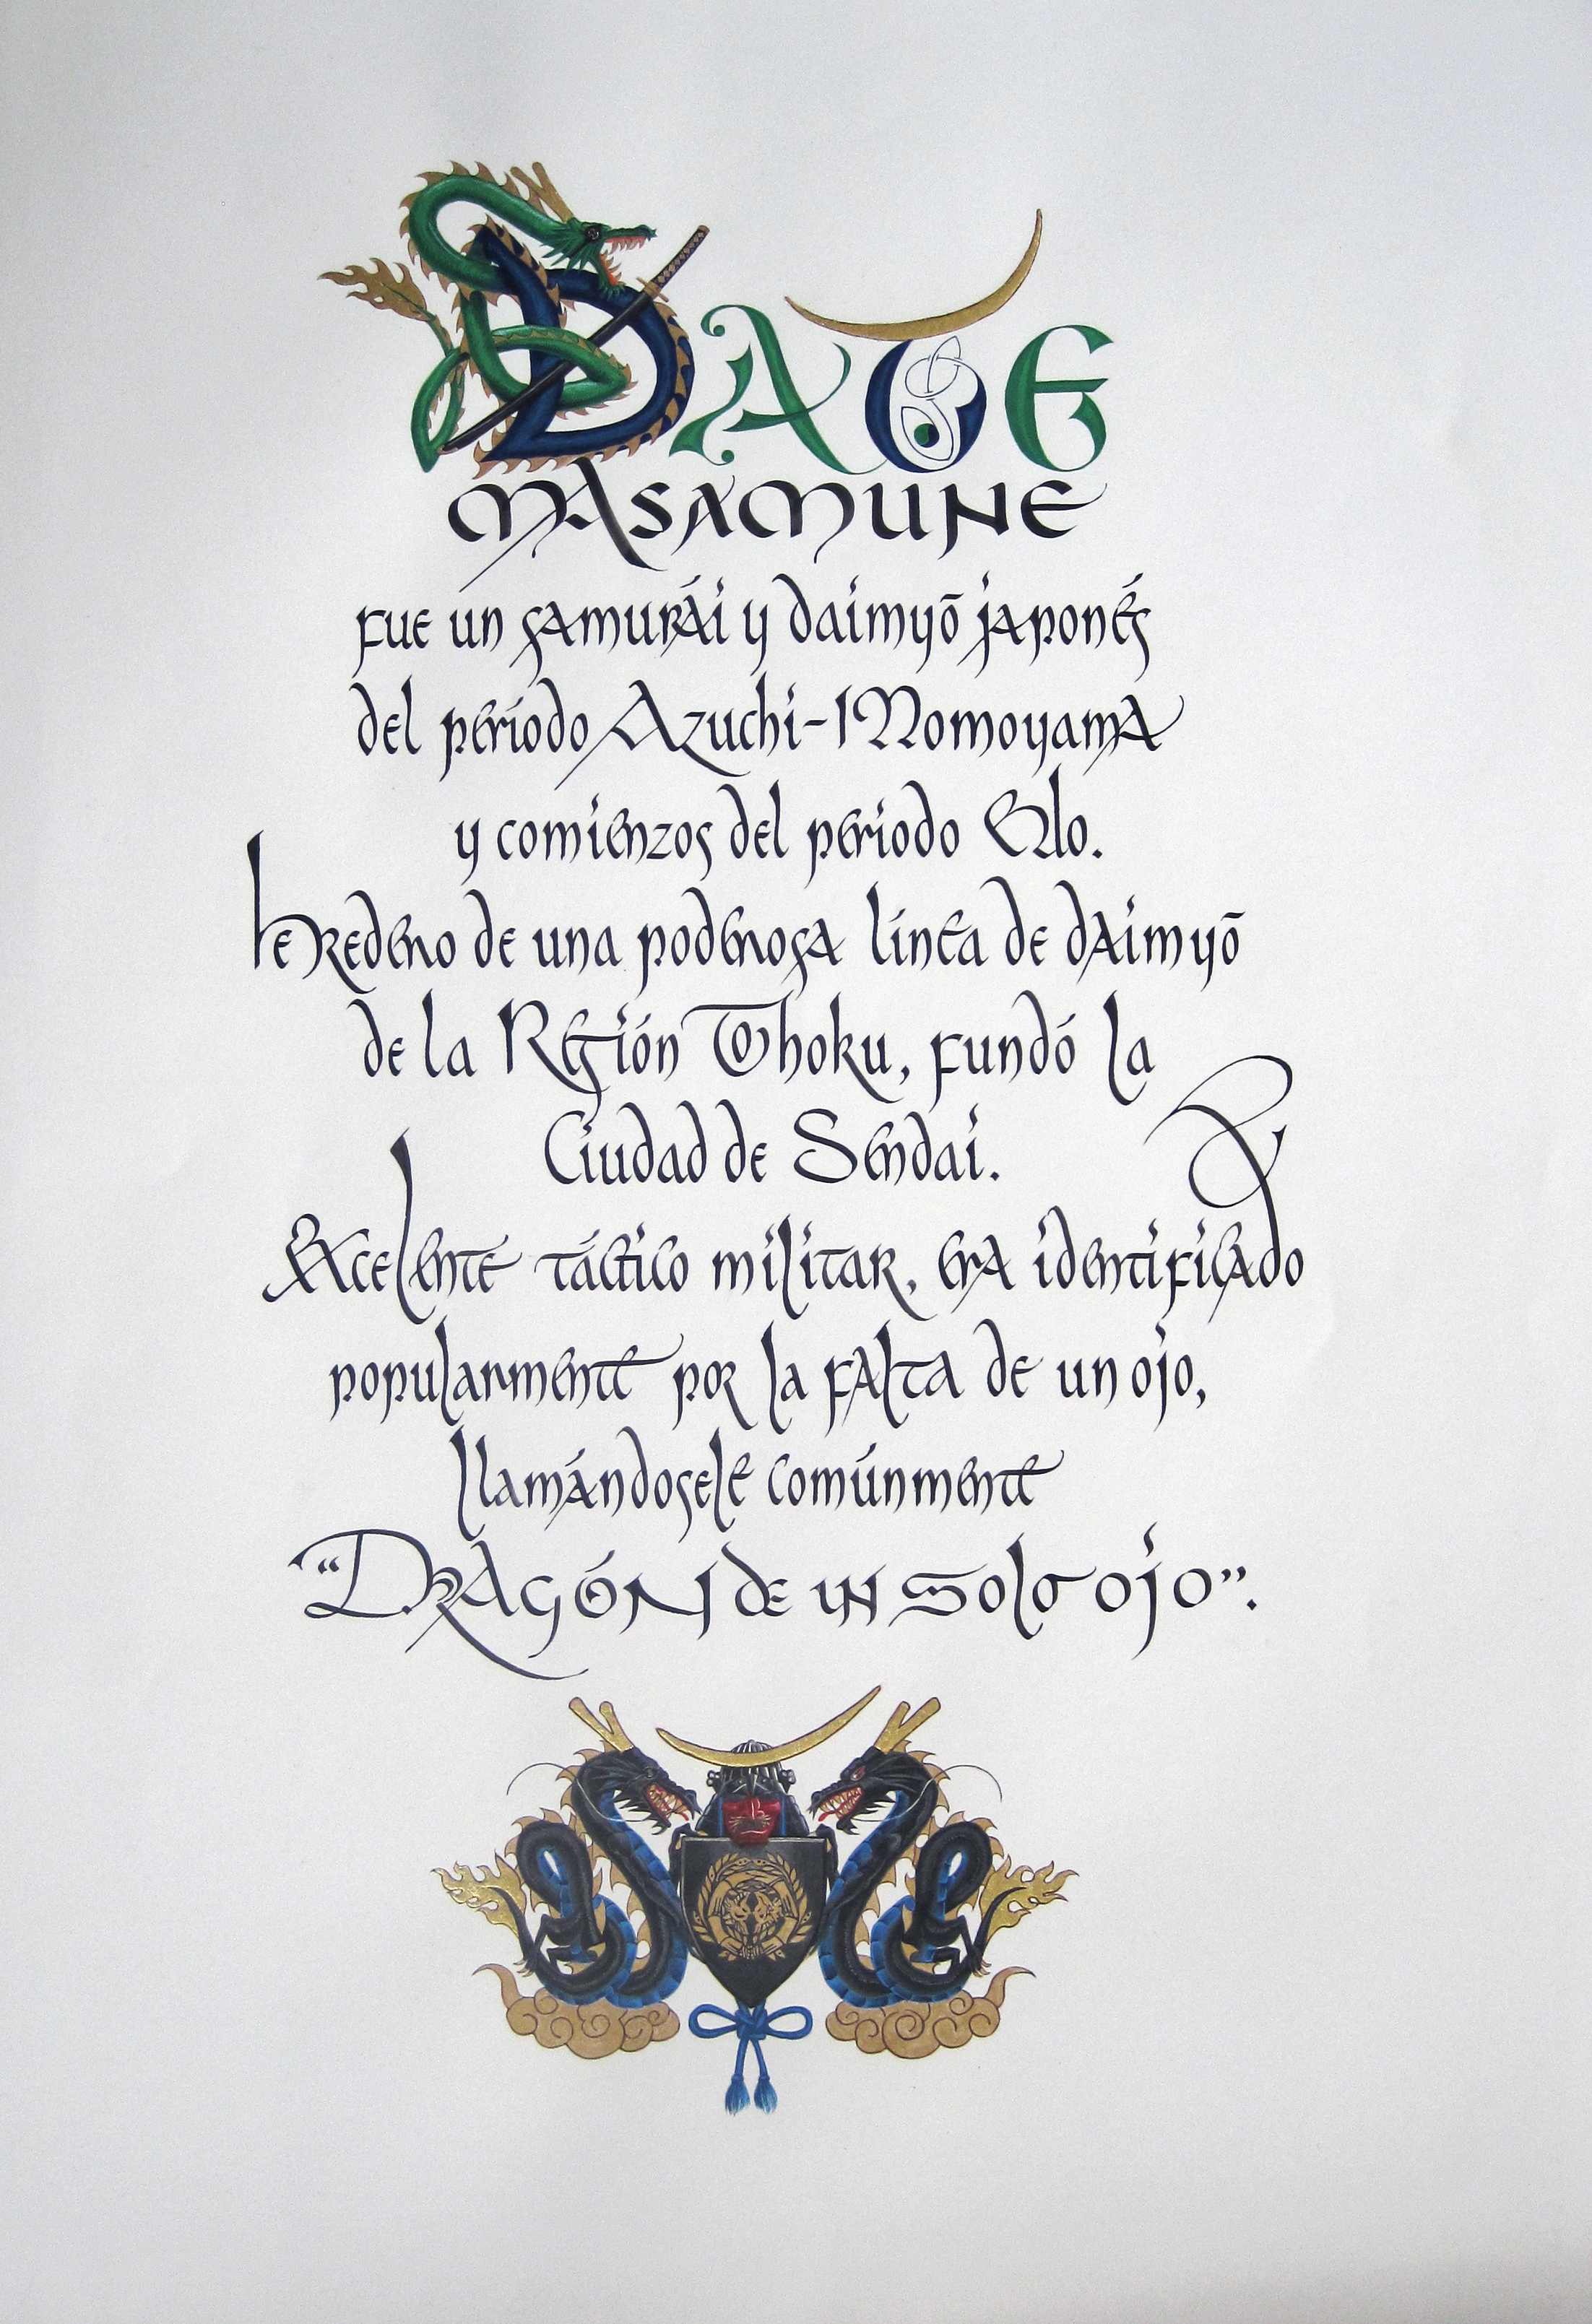 DATE
MASAMUNE
fue un samurái y daimyō japonés
del período Azuchi-Momoyama
y comienzos del período Edo.
heredero de una poderosa línea de daimyō
de la Región Tohoku, fundó la
Ciudad de Sendai.
Excelente táctico militar, era identificado
popularmente por la falta de un ojo,
llamándosele comúnmente
"DRAGÓN DE UN Solo OJO".